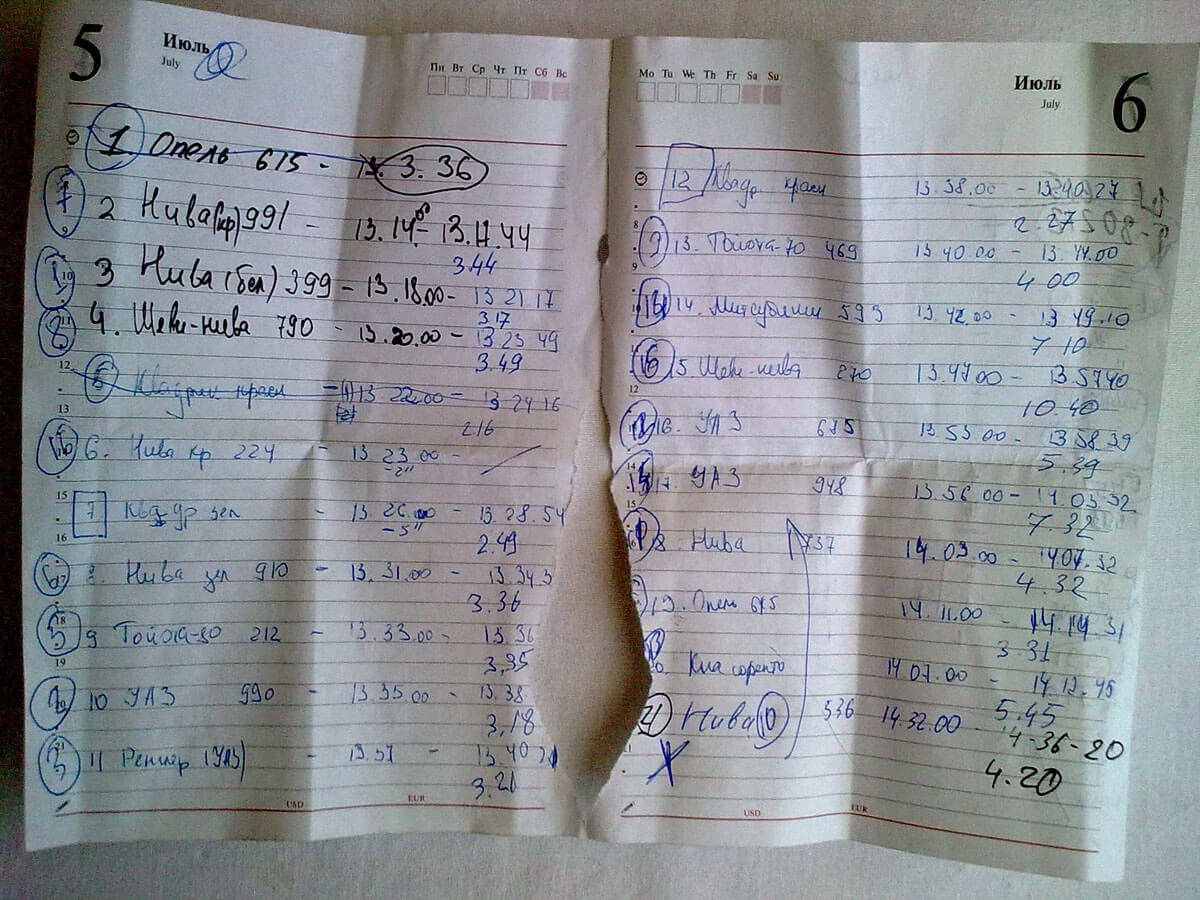 5
Июль
July
Пн Вт Ср Чт Пт Сб Вс
1 Опель 615 - 3.36
2 Нива (кр) 991 - 13.14.00 - 13.17.44
3.44
3 Нива (бел) 399 - 13.18.00 - 13 21 17
3.17
4. Шеви-нива 790 - 13.20.00 - 13 23 49
3.49
5 Квадрик красн - 13 22.00 - 13 24 16
2 16
6. Нива кр 224 - 13 23 00 -
-2"
7 Квадр зел - 13 26.00 - 13.28.54
-5"
2.49
8. Нива зел 910 - 13.31.00 - 13.34 3
3.36
9 Тойота-80 212 - 13.33.00 - 13.36
3,35
10 УАЗ 990 - 13.35.00 - 13.38
3,18
11 Ренжер (УАЗ) - 13.37 - 13.40 21
3.21
USD EUR
Июль
July
6
Mo Tu We Th Fr Sa Su
12 Квадр красн 13.38.00 - 13.40.27
2.27
13. Тойота-70 469 13.40.00 - 13.44.00
4.00
14. Митсубиши 593 13.42.00 - 13 49.10
7 10
15. Шеви-нива 270 13.47.00 - 13.57 40
10.40
16. УАЗ 675 13.53 00 - 13 58 39
5.39
17. УАЗ 948 13.56 00 - 14.03.32
7.32
18. Нива 737 14.03.00 - 14 07.32
4.32
19. Опель 615 14.11.00 - 14.14.31
3 31
Киа соренто 14.07.00 - 14.12.45
5.45
21 Нива 536 14.32.00 - 14-36-20
4.20
USD EUR